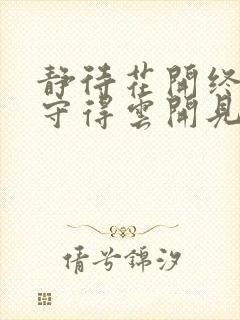 静待花開终
守得雲開見
倩兮錦汐